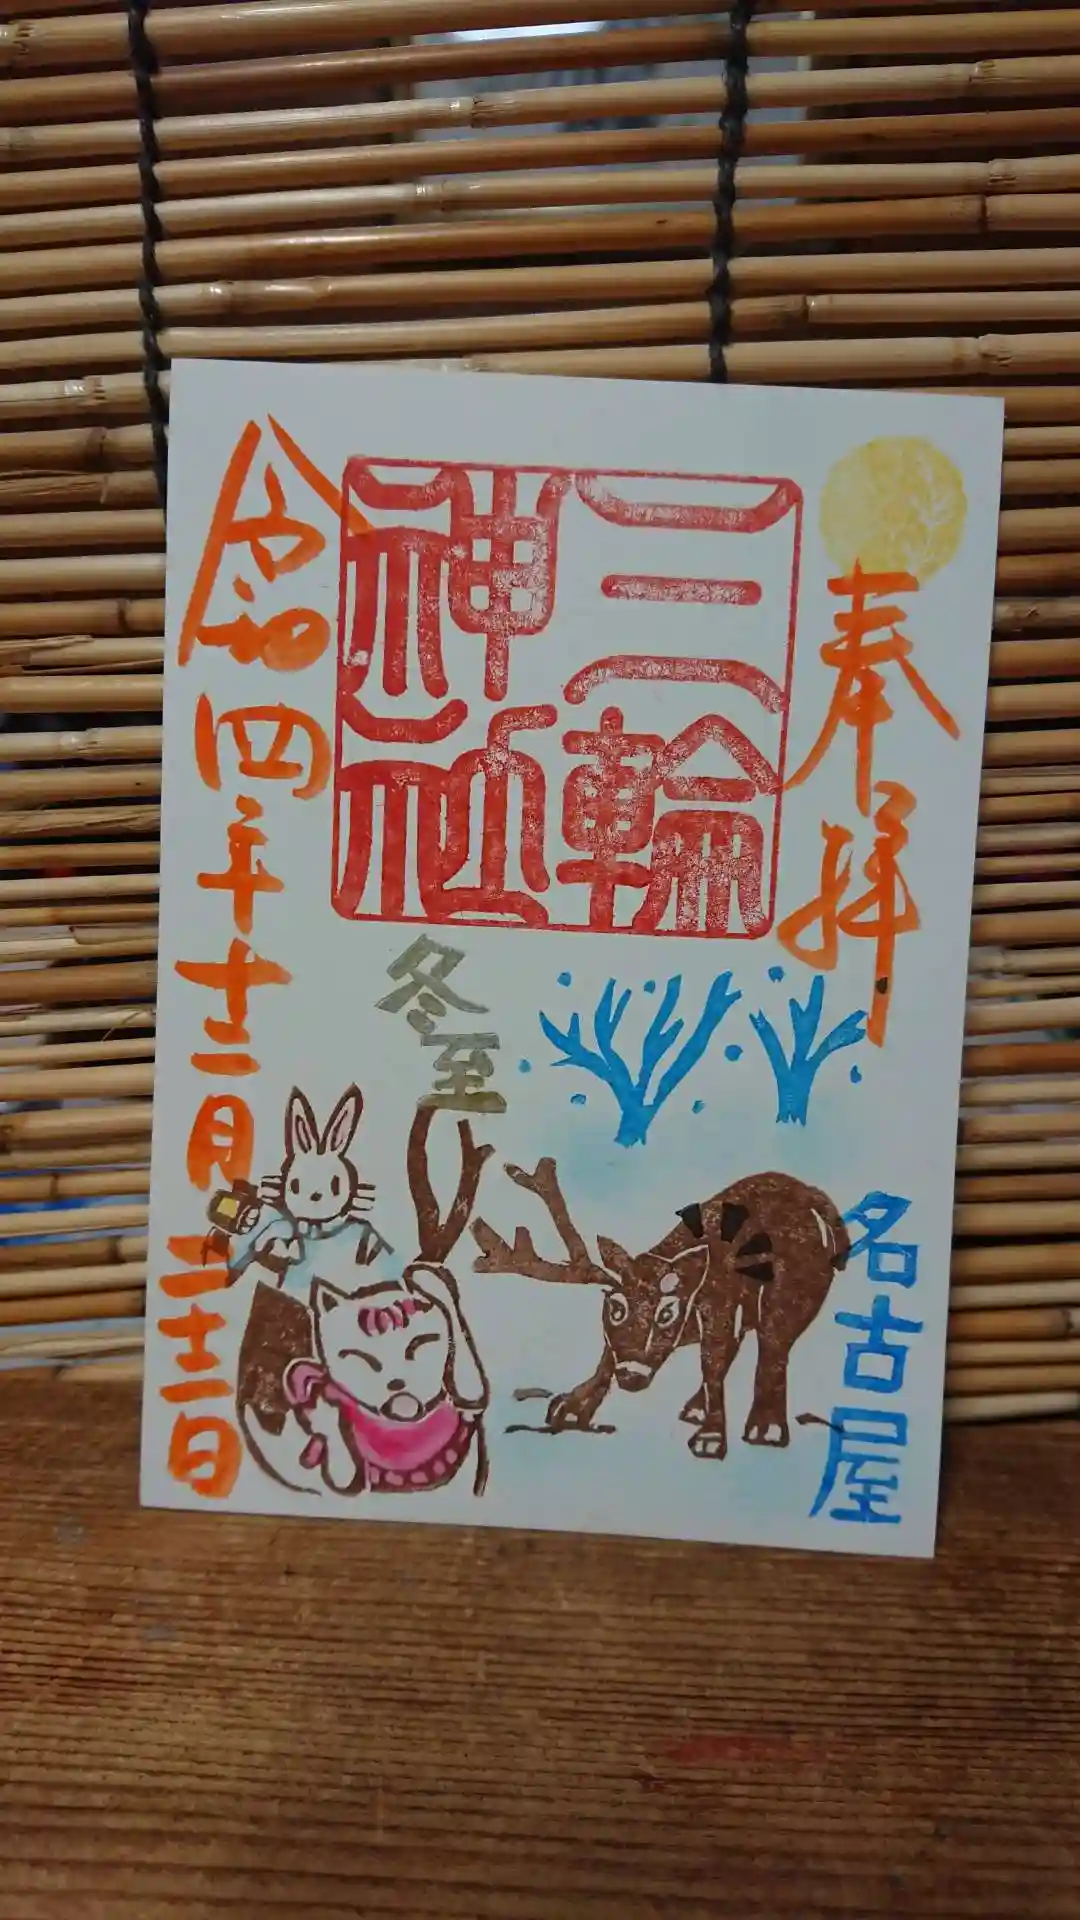 奉拝
三輪
神社
冬至
名古屋
令和四年十二月二十二日